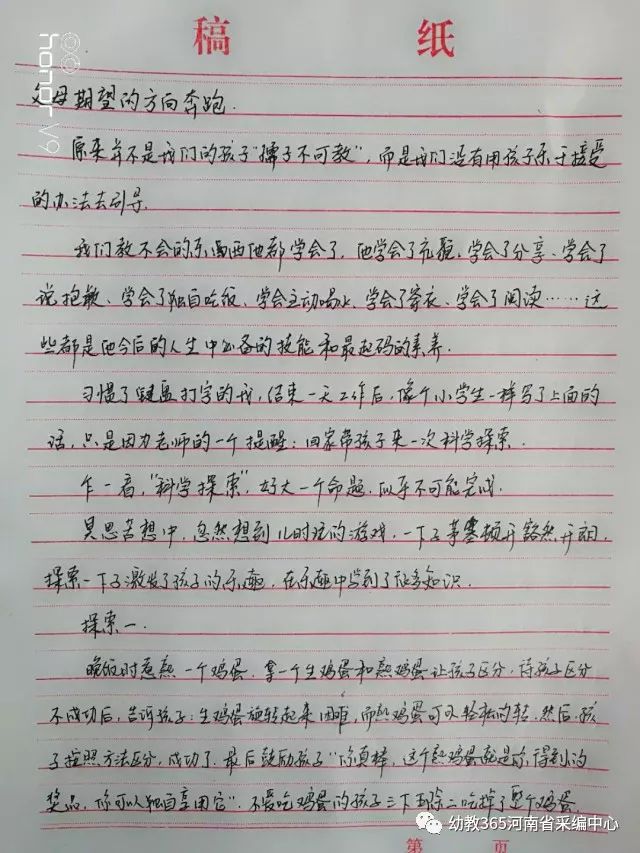 稿 纸
honor V9
父母期望的方向奔跑.
原来并不是我们的孩子"孺子不可教",而是我们没有用孩子乐于接受
的办法去引导.
我们教不会的东西他都学会了.他学会了礼貌.学会了分享、学会了
说抱歉、学会了独自吃饭、学会主动喝水、学会了穿衣、学会了阅读……这
些都是他今后的人生中必备的技能和最起码的素养.
习惯了键盘打字的我,结束一天工作后,像个小学生一样写了上面的
话,只是因为老师的一个提醒:回家带孩子来一次科学探索.
乍一看,"科学探索",好大一个命题.似乎不可能完成.
冥思苦想中,忽然想到儿时玩的游戏,一下子茅塞顿开豁然开朗.
探索一下子激发了孩子的乐趣,在乐趣中学到了很多知识.
探索一.
晚饭时煮熟一个鸡蛋.拿一个生鸡蛋和熟鸡蛋让孩子区分,待孩子区分
不成功后,告诉孩子:生鸡蛋旋转起来困难,而熟鸡蛋可以轻松的转.然后.孩
子按照方法区分,成功了.最后鼓励孩子"你真棒,这个熟鸡蛋就是你得到的
奖品,你可以独自享用它".不爱吃鸡蛋的孩子三下五除二吃掉了整个鸡蛋.
幼教365河南省采编中心
第 页